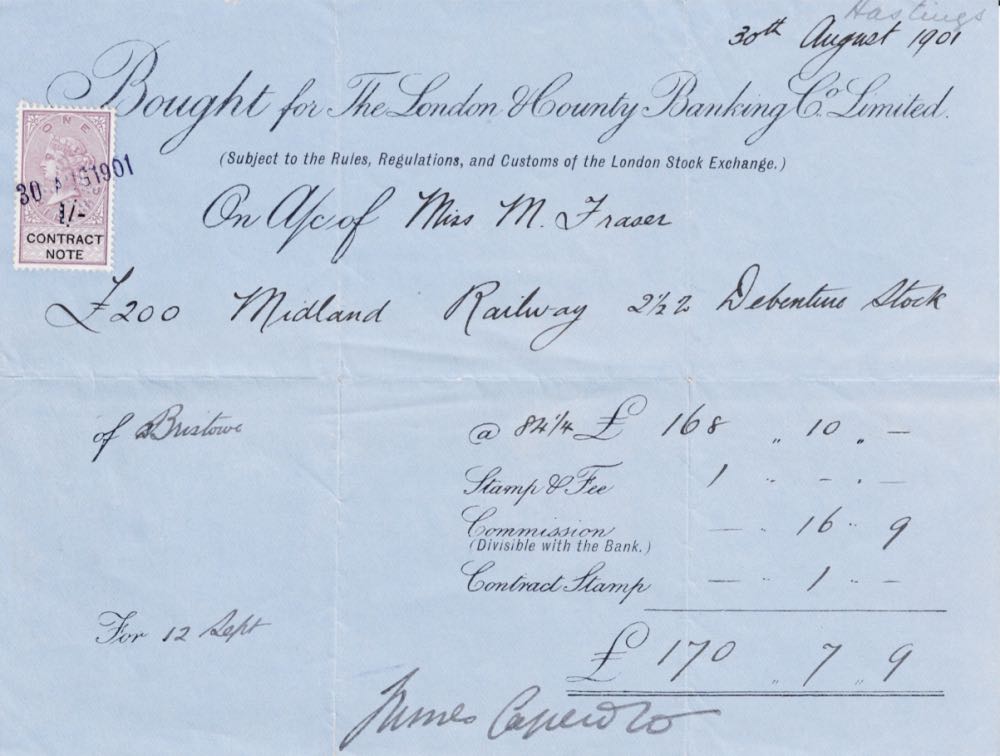 Hastings
30th August 1901
Bought for The London & County Banking Co. Limited.
(Subject to the Rules, Regulations, and Customs of the London Stock Exchange.)
ONE
30 AUG 1901
1/-
CONTRACT
NOTE
On A/c of Miss M. Fraser
£200 Midland Railway 2½% Debenture Stock
of Bristowe @ 84¼ £ 168 " 10 " -
Stamp & Fee 1 " - " -
Commission - " 16 " 9
(Divisible with the Bank.)
Contract Stamp - " 1 " -
For 12 Sept
£ 170 " 7 " 9
James